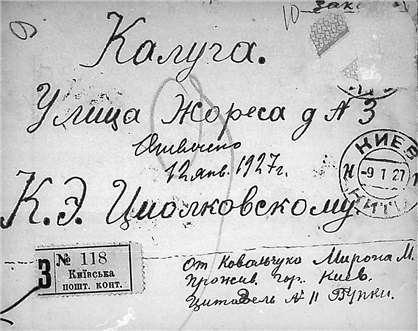 10-зак
Калуга.
Улица Жореса д № 3
Отвечено
12 янв. 1927г.
К. Э. Циолковскому
КИЕВ
-9 1 27
З
№ 118
Київська
пошт. конт.
От Ковальчука Мирона М.
Прожив. гор. Киев.
Цитадель № 11